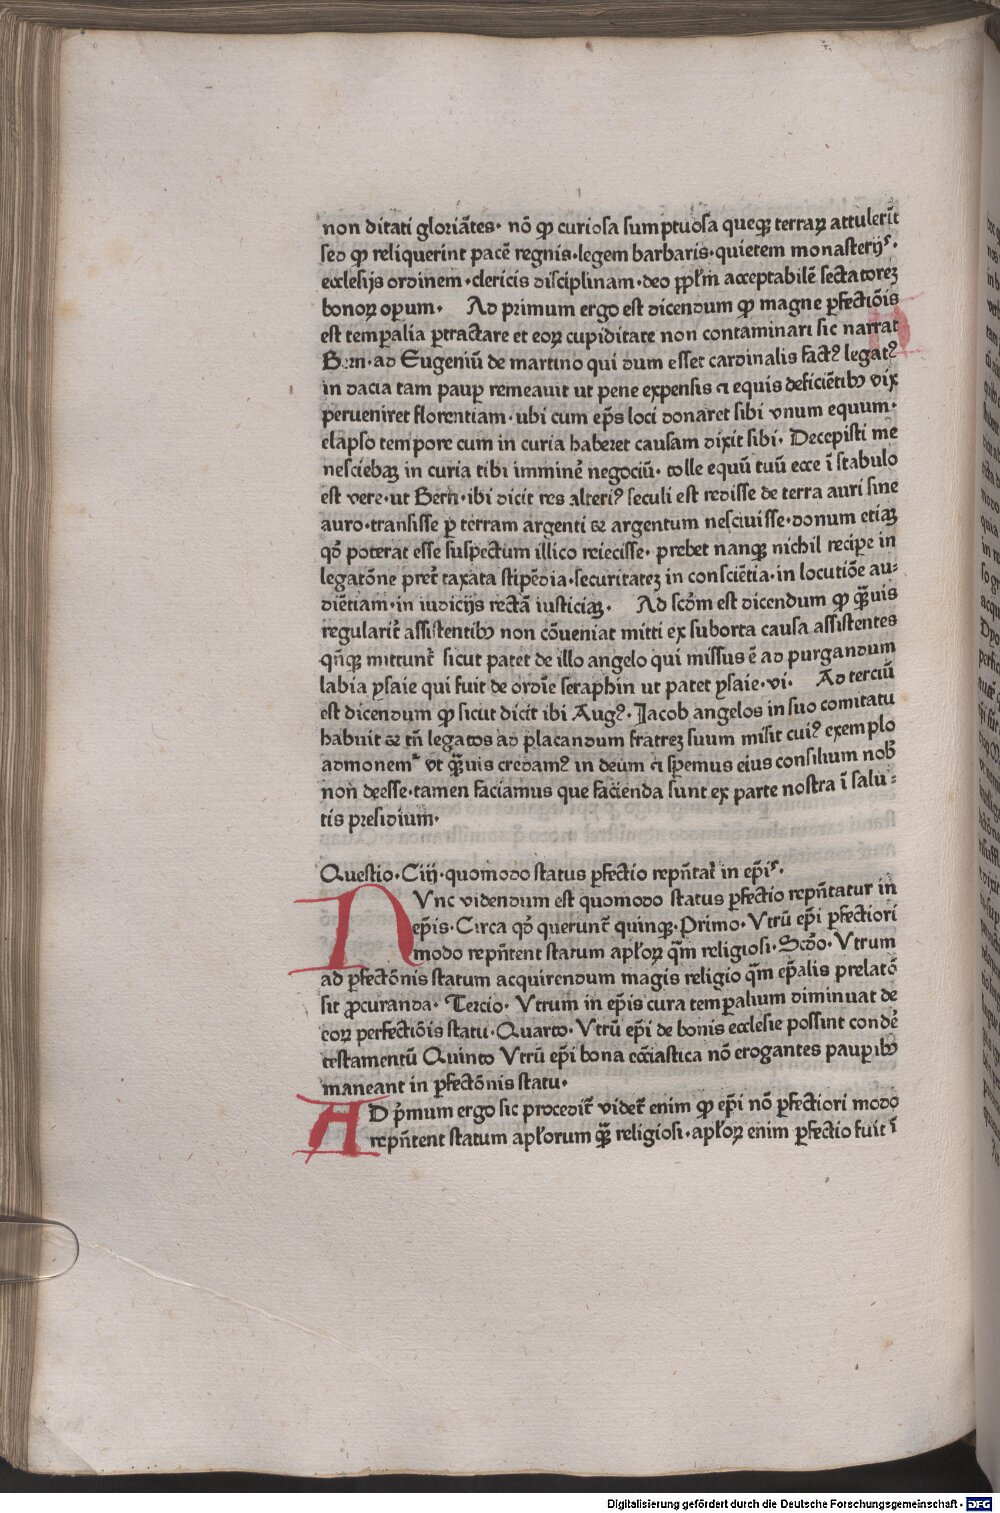 non ditati gloriātes· nō ꝙ curiosa sumptuosa queqꝫ terraꝝ attulerūt
sed ꝙ reliquerint pacē regnis·legem barbaris·quietem monasterijˢ·
ecclesijs ordinem·clericis disciplinam·deo ꝓpl̄m acceptabilē sectatorez
bonoꝝ opum· Ad primum ergo est dicendum ꝙ magne ꝑfectiōis
est temꝑalia ꝑtractare et eoꝝ cupiditate non contaminari sic narrat
Bern·ad Eugeniū de martino qui dum esset cardinalis factꝰ legatꝰ
in dacia tam pauꝑ remeauit ut pene expensis ⁊ equis deficiētibꝫ vix
perueniret florentiam·ubi cum ep̄s loci donaret sibi vnum equum·
elapso tempore cum in curia haberet causam dixit sibi· Decepisti me
nesciebaꝫ in curia tibi imminē negociū· tolle equū tuū ecce ī stabulo
est vere·ut Bern·ibi dicit res alteriꝰ seculi est redisse de terra auri sine
auro·transisse ꝑ terram argenti & argentum nesciuisse·donum etiaꝫ
qđ poterat esse suspectum illico reiecisse· prebet nanqꝫ nichil recipe in
legatōne pret̄ taxata stipēdia·securitateꝫ in consciētia·in locutiōe au⸗
diētiam·in iudicijs rectā iusticiaꝫ· Ad scđm est dicendum ꝙ qꝫ̄uis
regularit̄ assistentibꝫ non cōueniat mitti ex suborta causa assistentes
qn̄qꝫ mittunt̄ sicut patet de illo angelo qui missus ē ad purgandum
labia ysaie qui fuit de ordīe seraphin ut patet ysaie·vi· Ad terciū
est dicendum ꝙ sicut dicit ibi Augꝰ· Jacob angelos in suo comitatu
habuit & tn̄ legatos ad placandum fratreꝫ suum misit cuiꝰ exemplo
admonemʳ vt qꝫ̄uis credamꝰ in deum ⁊ sꝑemus eius consilium nob̄
non deesse·tamen faciamus que facienda sunt ex parte nostra ī salu⸗
tis presidium·
Questio·Ciij·quomodo status ꝑfectio repn̄tat̄ in ep̄iˢ·
NVnc videndum est quomodo status ꝑfectio repn̄tatur in
ep̄is·Circa qđ querunt̄ quinqꝫ·Primo·Vtrū ep̄i ꝑfectiori
modo repn̄tent statum apl̄oꝝ qꝫ̄m religiosi·Scđo·Vtrum
ad ꝑfectōnis statum acquirendum magis religio qꝫ̄m ep̄alis prelatō
sit ꝓcuranda· Tercio· Vtrum in ep̄is cura temꝑalium diminuat de
eoꝝ perfectiōis statu·Quarto·Vtrū ep̄i de bonis ecclesie possint condē
testamentū Quinto Vtrū ep̄i bona ecc̄iastica nō erogantes pauꝑibꝫ
maneant in ꝑfectōnis statu·
AD p̄mum ergo sic procedit̄ videt̄ enim ꝙ ep̄i nō ꝑfectiori modo
repn̄tent statum apl̄orum qꝫ̄ religiosi·apl̄oꝝ enim ꝑfectio fuit ī
Digitalisierung gefördert durch die Deutsche Forschungsgemeinschaft · DFG